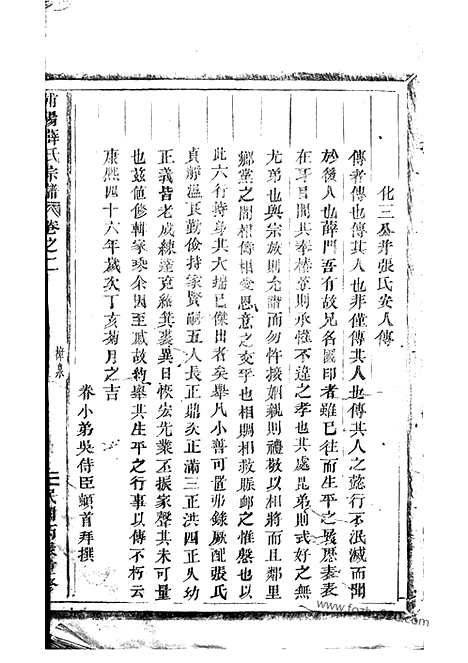 化三公并張氏安人傳
傳者傳也傳其人也非僅傳其人也傳其人之懿行不泯滅而聞
於後人也薛門吾有故兄名國印者雖已往而生平之履歷表表
在耳目間其奉椿萱則承懽不違之孝也其處昆弟則式好之無
尤弟也與宗族則允諧而勿忤接姻親則禮敬以相將而且鄰里
鄉黨之間相倚相愛恩意之交孚也相賙相救賑卹之惟慇也以
此六行持身其大端已傑出者矣舉凡小善可置弗錄厥配張氏
貞靜溫良勤儉持家賢嗣五人長正鼎次正滿三正洪四正久幼
正義皆老成練達克紹箕裘異日恢宏先業丕振家聲其未可量
也茲值修輯家乘余因至戚故約舉其生平之行事以傳不朽云
康熙四十六年歲次丁亥菊月之吉
眷小弟吳侍臣頓首拜撰
薛氏宗譜 卷之一
www.fozhupu.com